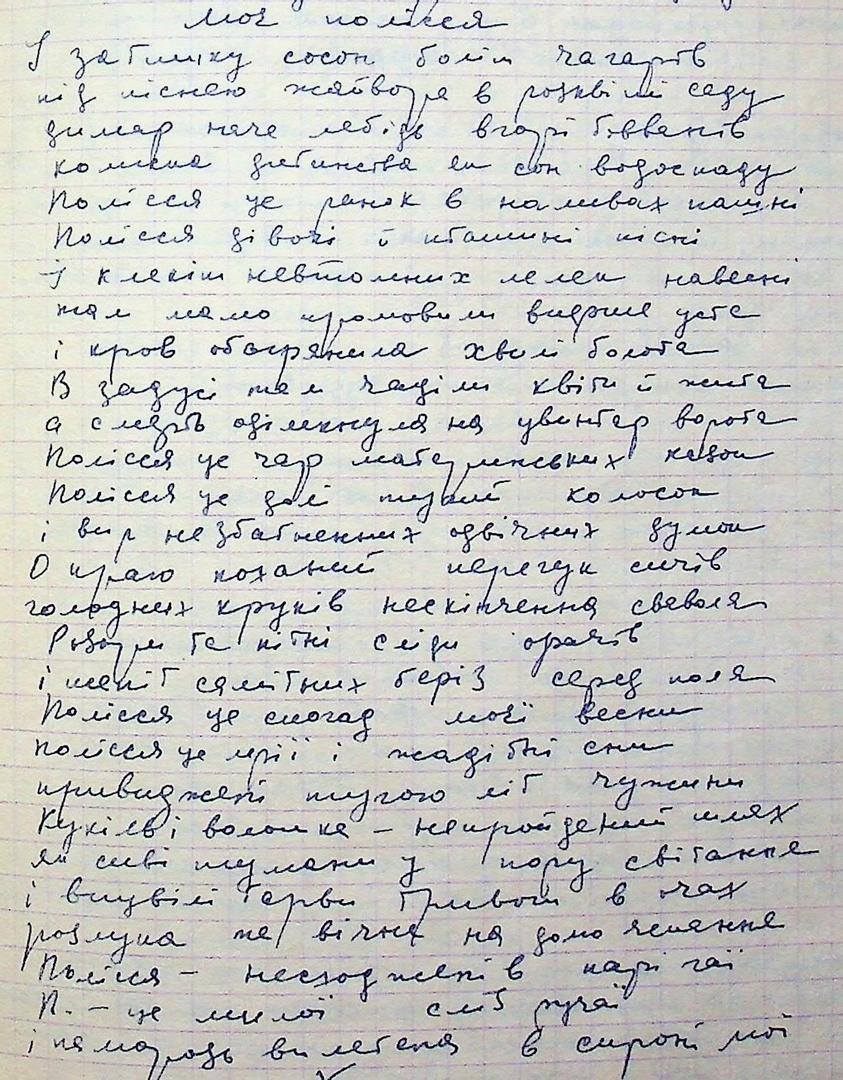 Моє полісся
І затишку сосон болім чагарів
під піснею жайвора в розквіті саду
димар наче лебідь вгорі бовванів
колиска дитинства як сон водоспаду
Полісся це ранок в наливах пашні
Полісся дівочі й пташині пісні
І клекіт невтомних лелек навесні
там мамо промовили вперше уста
і кров обагрянила хвилі болота
В задусі там чаділи квіти й жита
а смерть відімкнула на цвинтар ворота
Полісся це чар материнських казок
Полісся це долі тугий колосок
і вир незбагненних одвічних думок
О краю коханий перегук сичів
голодних круків нескінченна сваволя
Розори та кітні сліди орачів
і шепіт самітних беріз серед поля
Полісся це спогад моєї весни
полісся це мрії і жадібні сни
привиджені тугою літ чужини
Кукіль і волошка – непройдений шлях
як сиві тумани у пору світання
і вицвілі барви тривоги в очах
розлука не вічна на домо
Полісся – несходжені в парі гаї
П. – це милої сліз ручаї
і паморозь вилетена в мої